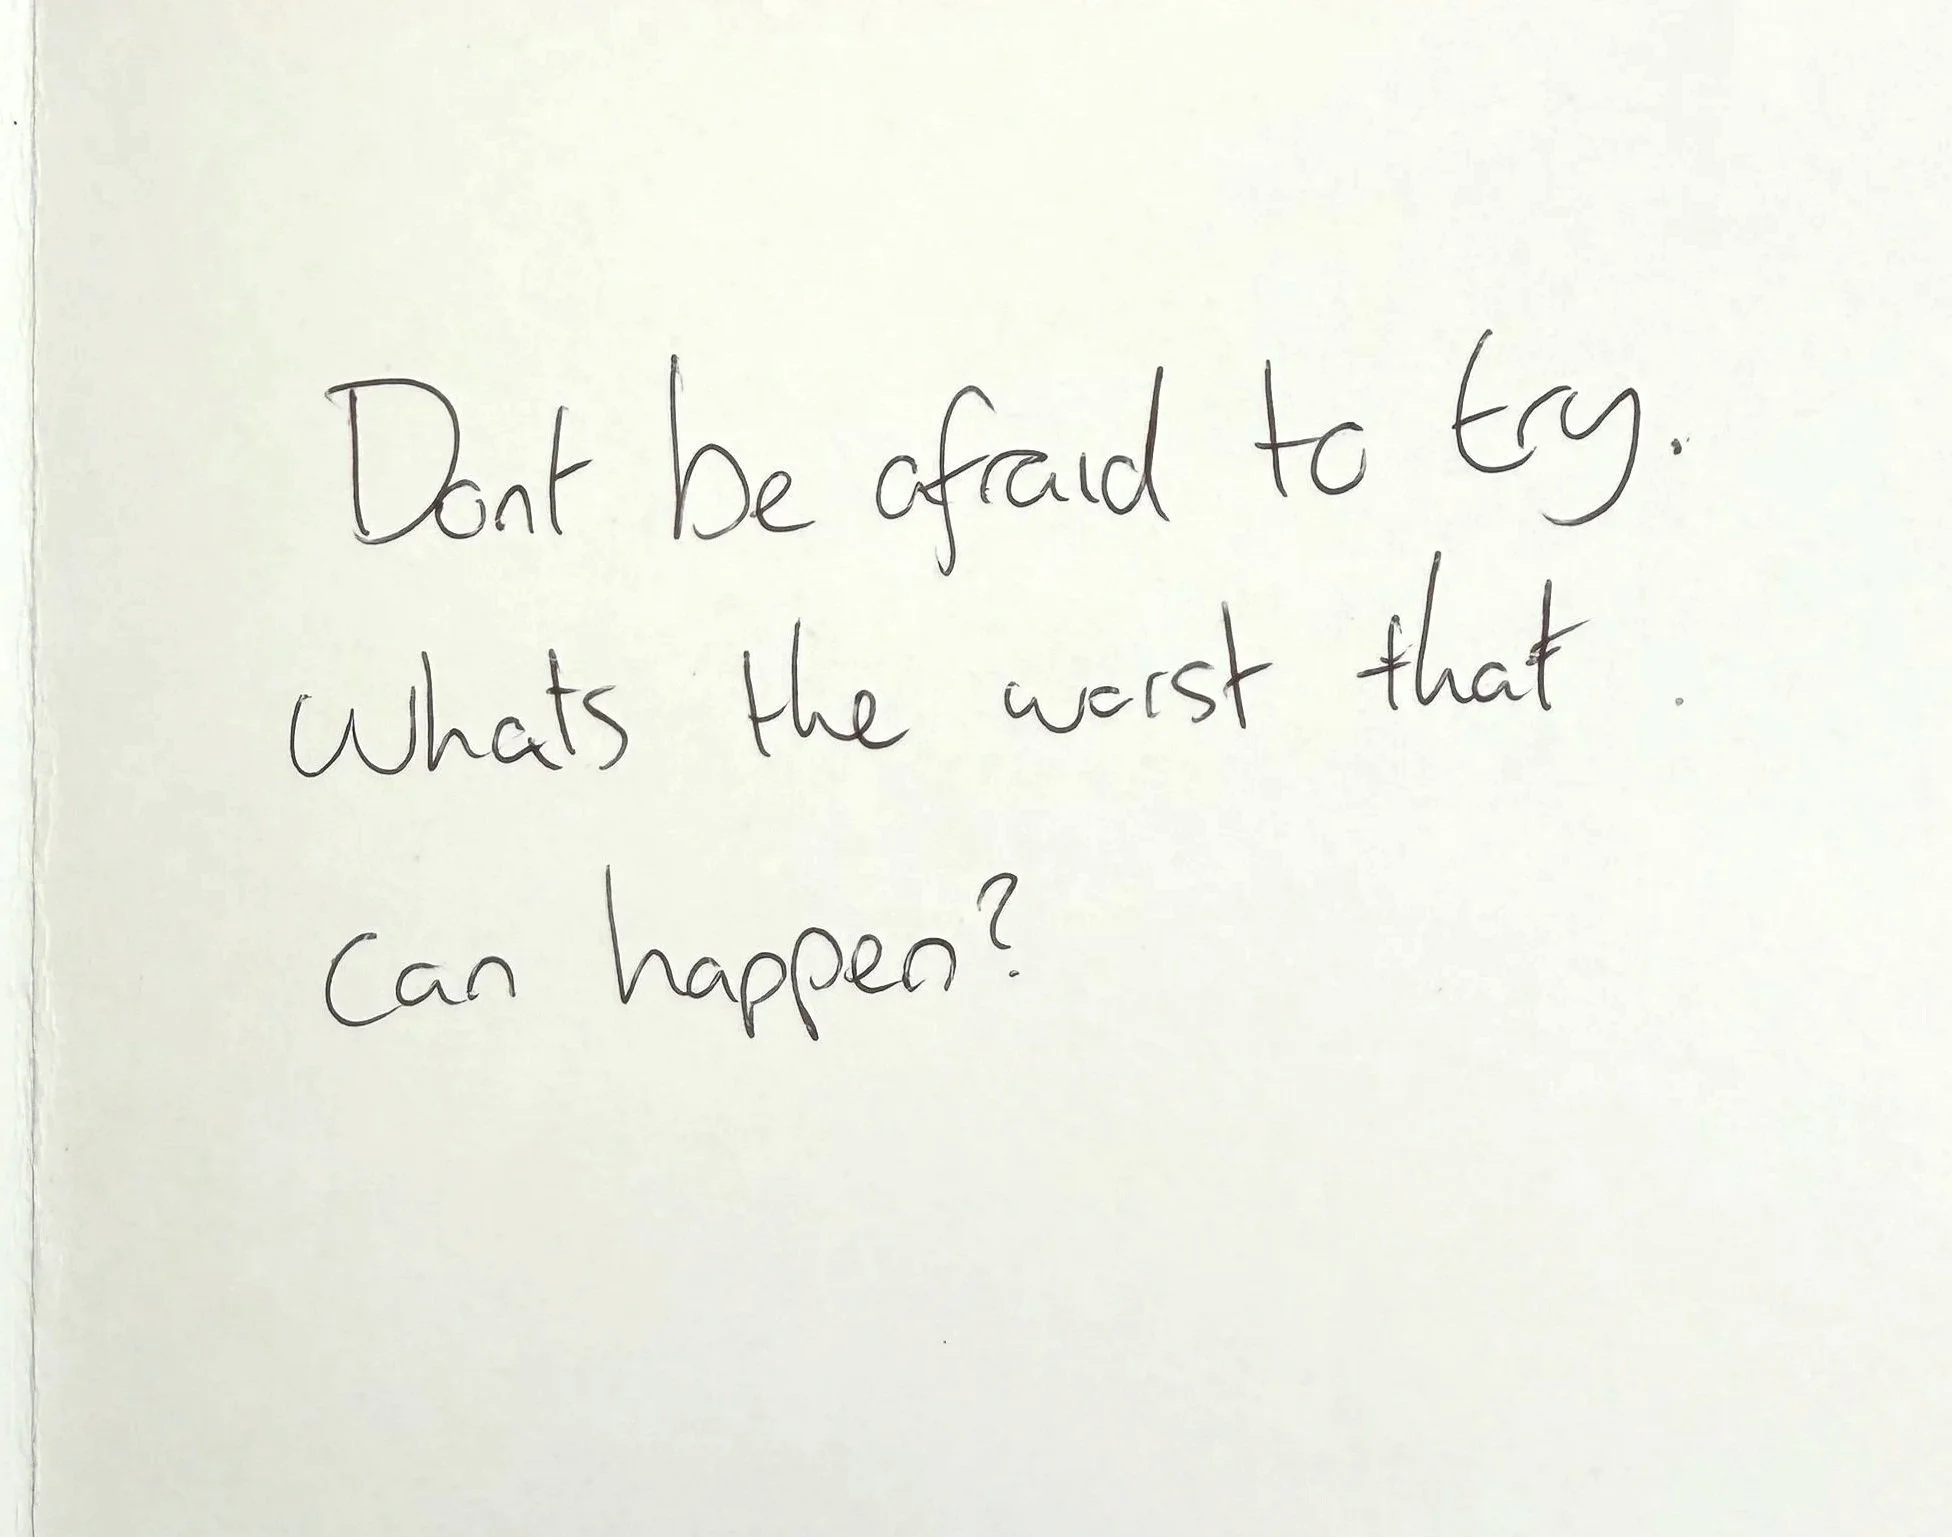 Dont be afraid to try.
Whats the worst that
can happen?